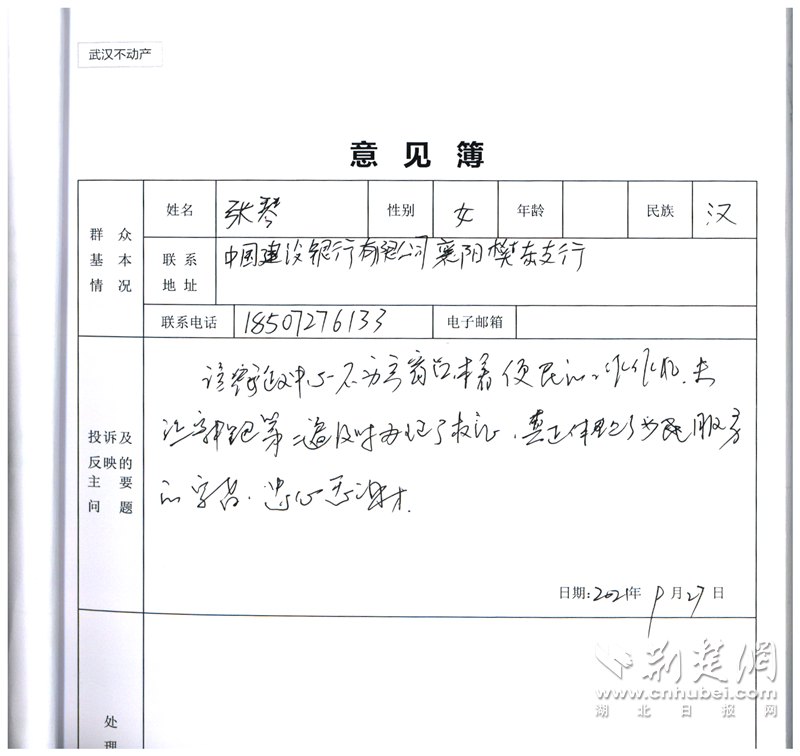 武汉不动产
意见簿
群众基本情况
姓名 张琴 性别 女 年龄 民族 汉
联系地址 中国建设银行有限公司襄阳樊东支行
联系电话 18507276133 电子邮箱
投诉及反映的主要问题
本着便民的工作作风,未
让客户跑第二趟及时办理了权证,真正体现了为民服务
的宗旨,忠心感谢.
日期:2021年9月27日
处理
荆楚網
www.cnhubei.com
湖北日报网